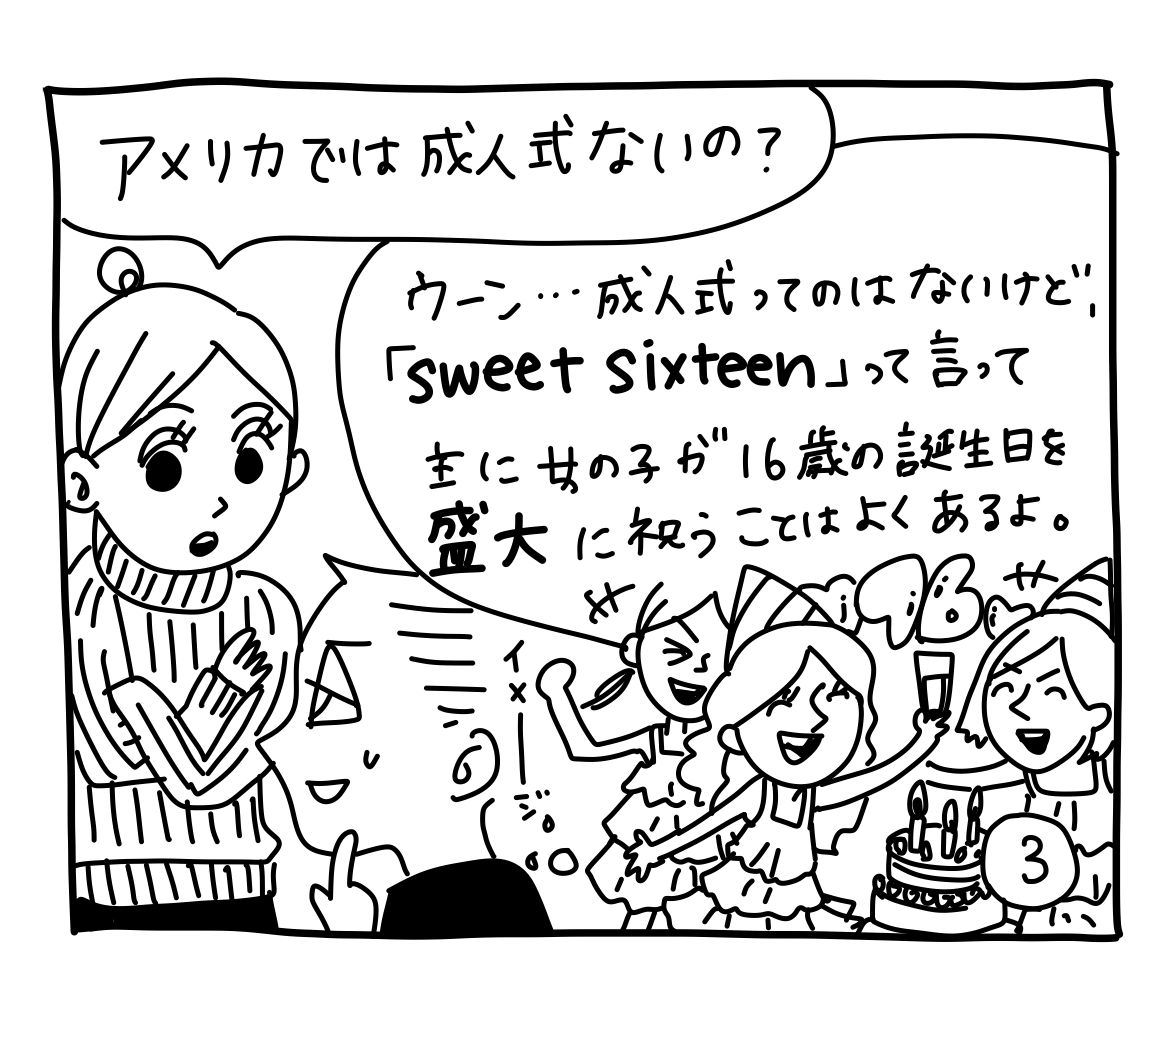 アメリカでは成人式ないの?
ウーン…成人式ってのはないけど、
「sweet sixteen」って言って
主に女の子が16歳の誕生日を
盛大に祝うことはよくあるよ。
イメージ
16
3